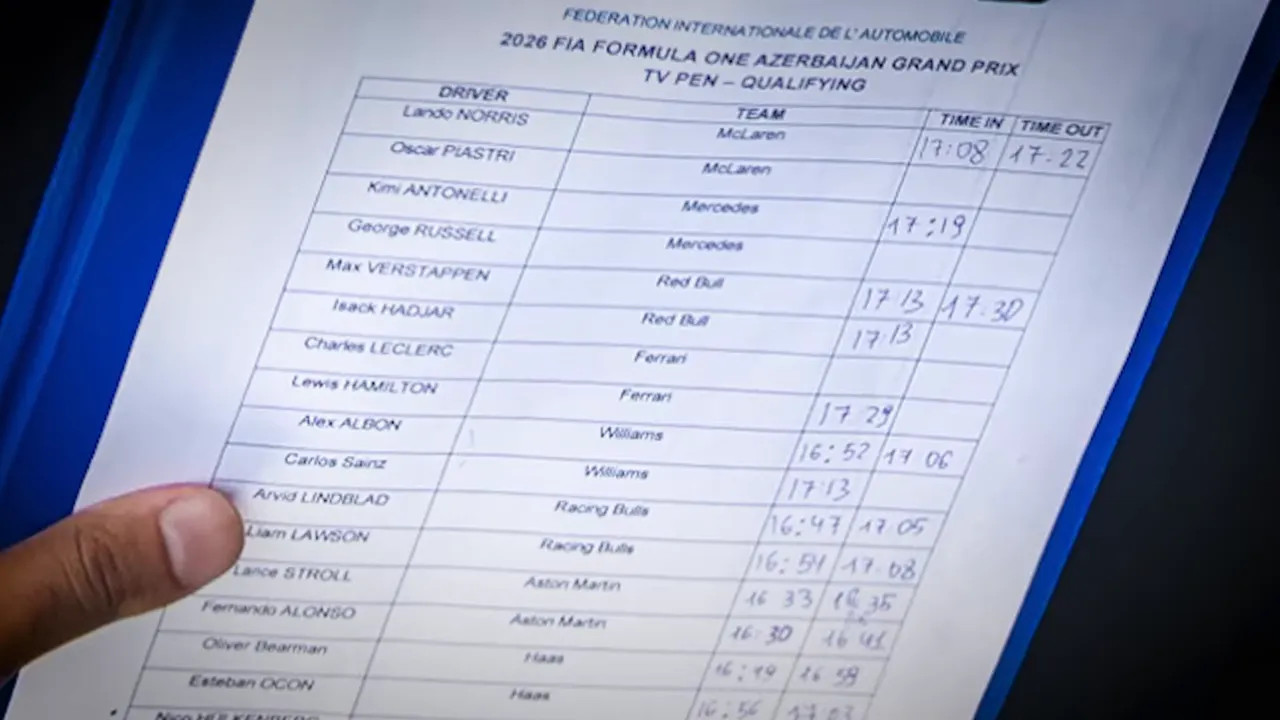 FEDERATION INTERNATIONALE DE L' AUTOMOBILE
2026 FIA FORMULA ONE AZERBAIJAN GRAND PRIX
TV PEN – QUALIFYING
DRIVER TEAM TIME IN TIME OUT
Lando NORRIS McLaren 17:08 17.22
Oscar PIASTRI McLaren
Kimi ANTONELLI Mercedes 17:19
George RUSSELL Mercedes
Max VERSTAPPEN Red Bull 17 13 17.30
Isack HADJAR Red Bull 17:13
Charles LECLERC Ferrari
Lewis HAMILTON Ferrari 17 29
Alex ALBON Williams 16:52 17 06
Carlos Sainz Williams 17:13
Arvid LINDBLAD Racing Bulls 16:47 17.05
Liam LAWSON Racing Bulls 17.08
Lance STROLL Aston Martin 16 33
Fernando ALONSO Aston Martin 16:30 16 41
Oliver Bearman Haas 16 59
Esteban OCON Haas 16:56 17.03
Nico HULKENBERG